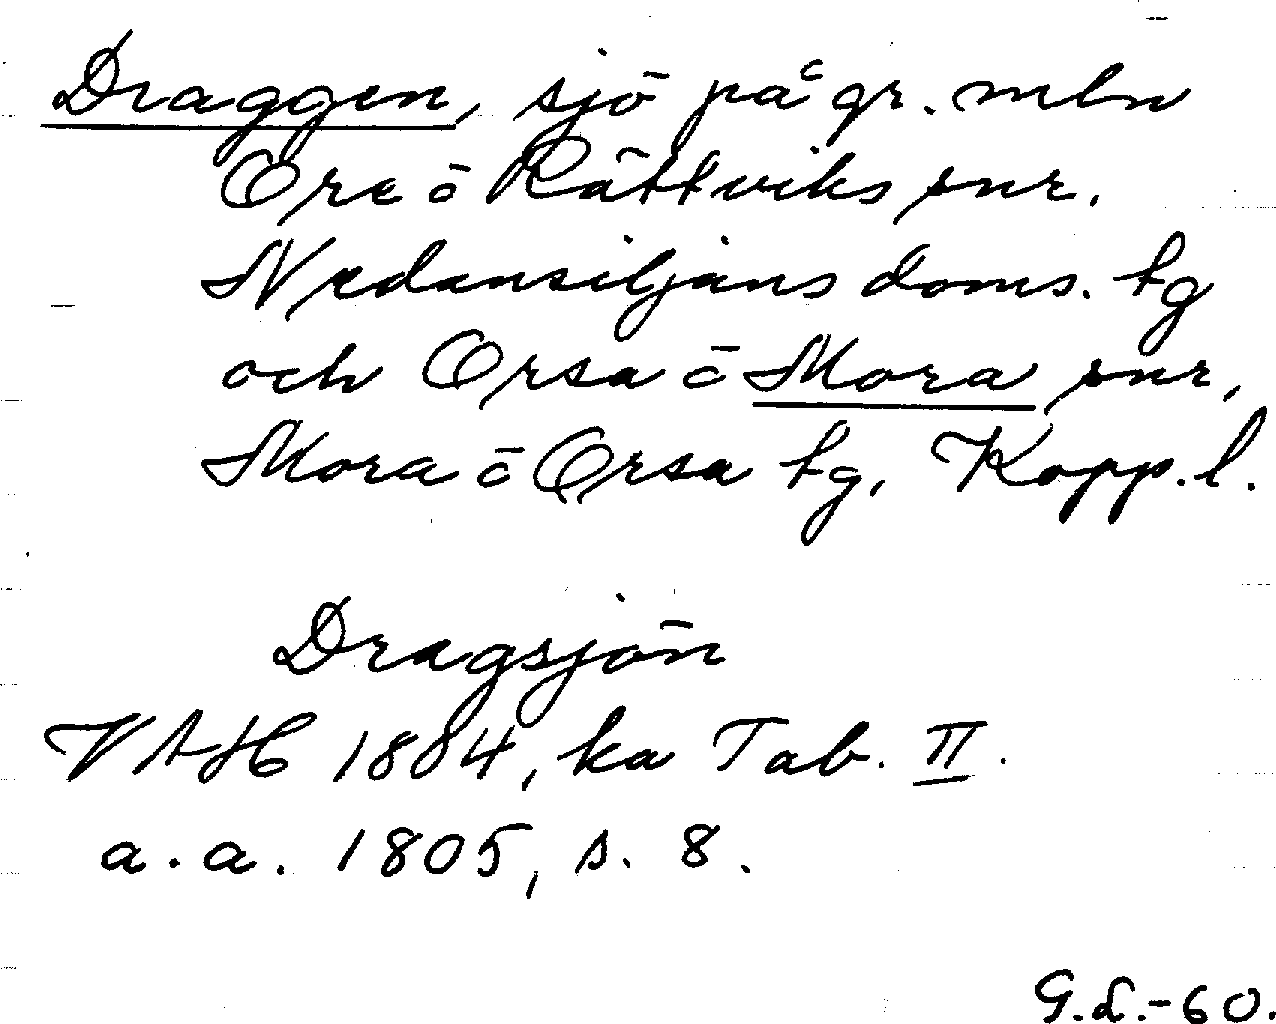 Draggen, sjö på gr. mln
Ore o Rättviks snr.
Nedansiljans doms. tg
och Orsa o Mora snr,
Mora o Orsa tg, Kopp. l.
Dragsjön
VAH 1804, ka Tab. II.
a.a. 1805, s. 8.
G.L.-60.